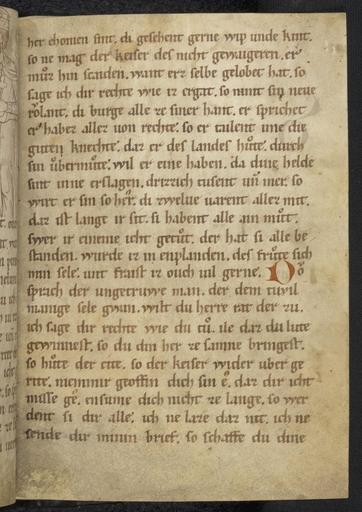 her chomen sint. di gesehent gerne wip unde kint.
so ne mag der keiser des nicht geweigeren. er
můz hin senden. want erz selbe gelobet hat. so
sage ich dir rechte wie iz ergat. so nimt sin neue
rölant. di burge alle ze siner hant. er sprichet
er habez allez uon rechte. so er
guten knechte. daz er des landes hůte. durch
sin ůbermůte. wil er eine haben. da dine helde
sint inne erslagen. drizzich tusent uñ mer. so
wirt er sin so her. di zwelue uarent allez mit.
daz ist lange ir sit. si habent alle ain můt.
swer ir eineme icht getůt. der hat si alle be
standen. wurde iz in enplanden. des frůte sich
min sele. unt fraist iz ouch uil gerne. Dŏ
sprach der ungetruwe man. der dem tiuil
manige sele gwan. wilt du herre rat der zu.
ich sage dir rechte wie du tů. ile daz du lute
gewinnest. so du din her ze samne bringest.
so hůte der cite. so der keiser wider uber ge
rite. niemmir geoffin dich sin ê. daz dir icht
misse gê. ensume dich nicht ze lange. so wer
dent si dir alle. ich ne laze daz nit. ich ne
sende dir minin brief. so schaffe du dine